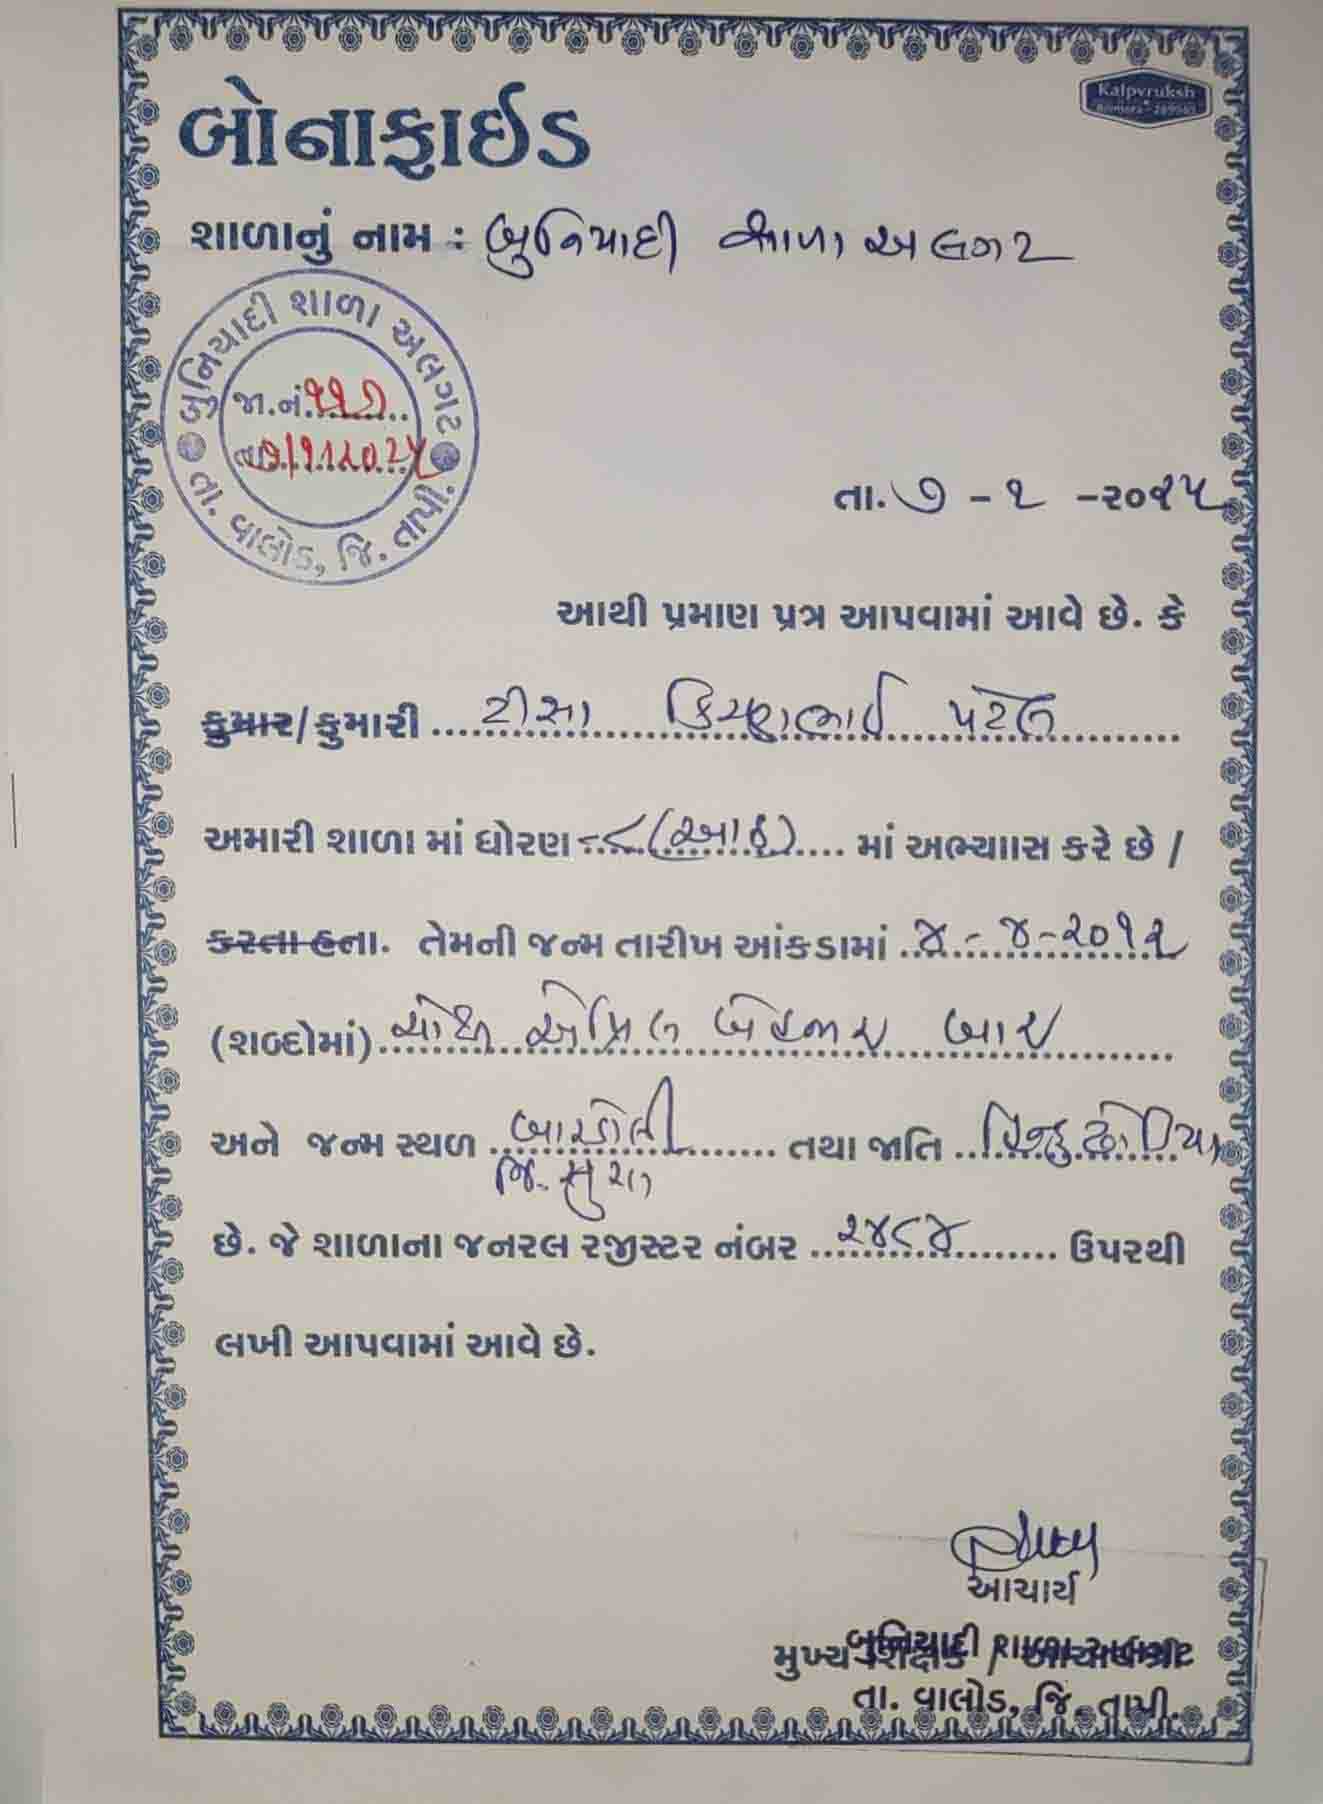 Kalpvruksh
બોનાફાઈડ
શાળાનું નામ : બુનિયાદી શાળા અલગટ
બુનિયાદી શાળા અલગટ
જા.નં. ૧૧૭
તા. ૭/૧/૨૦૨૫
તા. વાલોડ, જિ. તાપી.
તા. ૭ - ૧ -૨૦૨૫
આથી પ્રમાણ પત્ર આપવામાં આવે છે. કે
કુમાર/કુમારી ટીસા કિરણભાઈ પટેલ
અમારી શાળા માં ધોરણ ૮ (આઠ) માં અભ્યાાસ કરે છે /
કરતા હતા. તેમની જન્મ તારીખ આંકડામાં ૪-૪-૨૦૧૨
(શબ્દોમાં) ચોથી એપ્રિલ બેહજાર બાર
અને જન્મ સ્થળ બારડોલી તથા જાતિ હિન્દુ ઢોડિયા
જિ. સુરત
છે. જે શાળાના જનરલ રજીસ્ટર નંબર ૨૪૮૪ ઉપરથી
લખી આપવામાં આવે છે.
આચાર્ય
બુનિયાદી શાળા અલગટ
મુખ્ય શિક્ષક / આચાર્યશ્રી
તા. વાલોડ, જિ. તાપી.